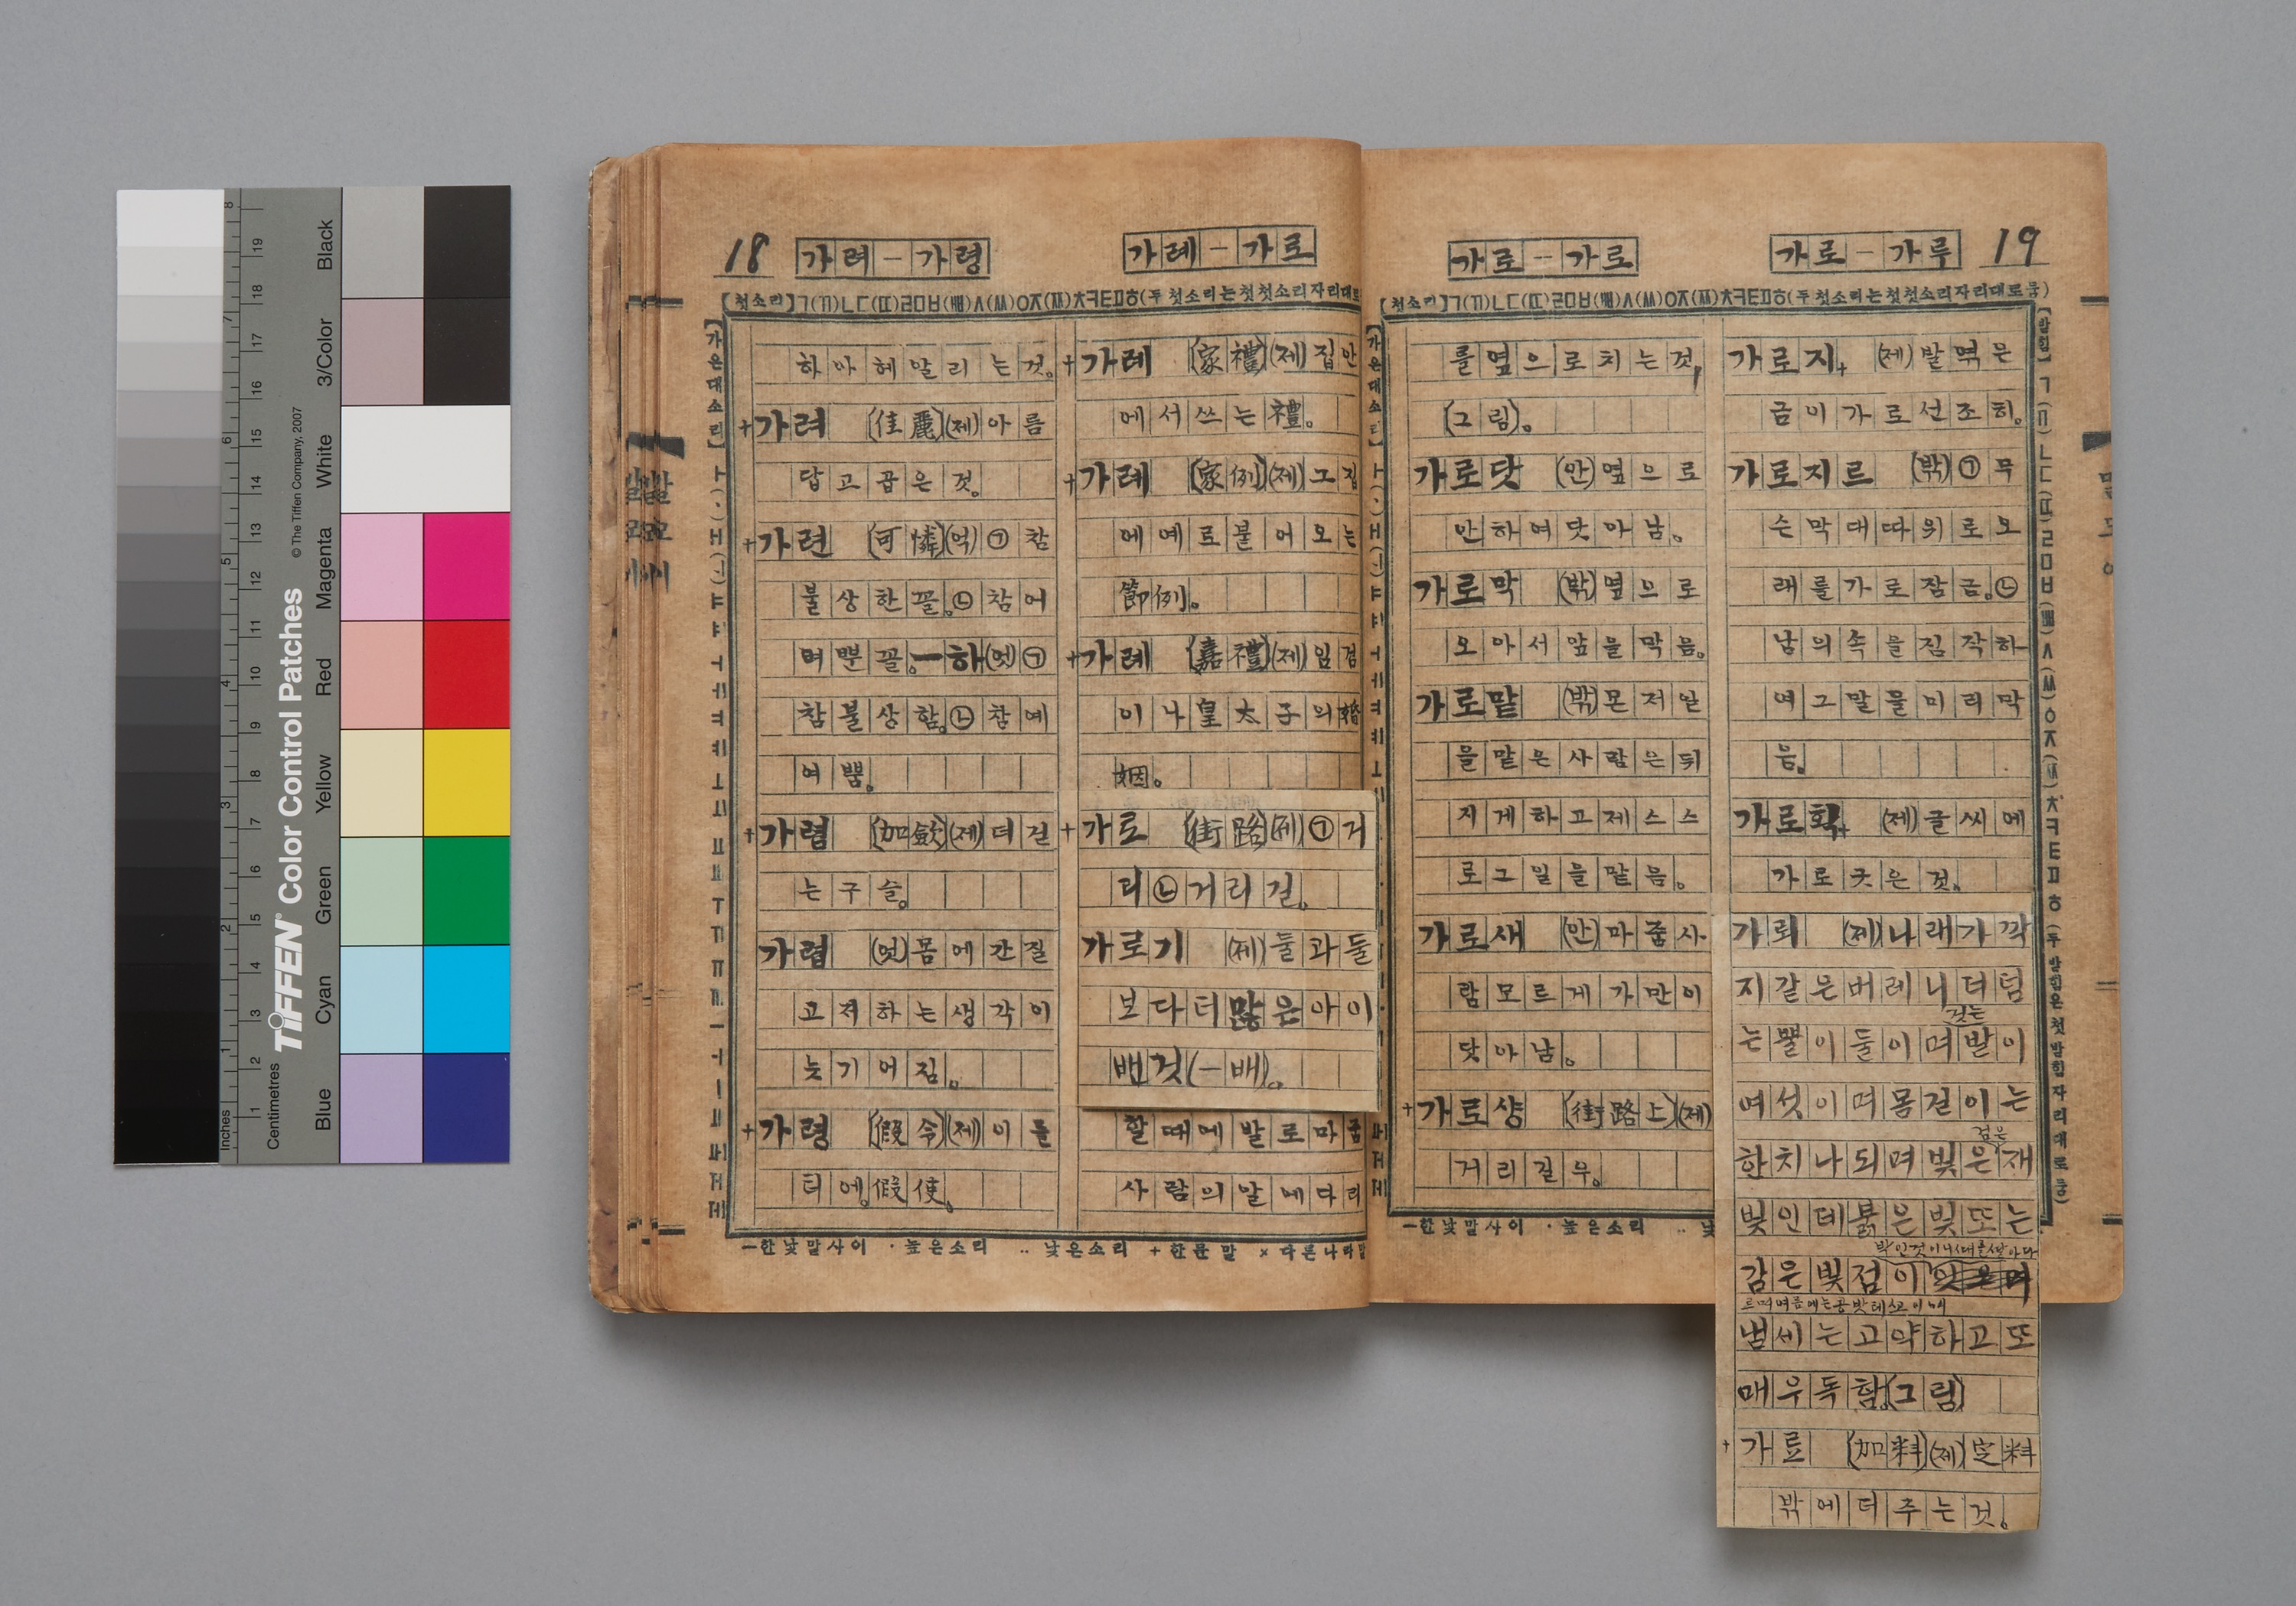 18
가려 - 가령
가례 - 가로
【첫소리】ㄱ(ㄲ)ㄴㄷ(ㄸ)ㄹㅁㅂ(ㅃ)ㅅ(ㅆ)ㅇㅈ(ㅉ)ㅊㅋㅌㅍㅎ(두첫소리는첫첫소리자리대로
【가온대소리】
하아혜알리는것。
+가려 (佳麗)(제)아름
답고곱은것。
+가련 (可憐)(억)㉠참
불상한꼴。㉡참어
여뿐꼴。ー하(엇)㉠
참불상함。㉡참예
여뿜。
+가렴 (加斂)(제)더걷
는구슬。
가렵 (엇)몸에간질
고저하는생각이
늣기어짐。
+가령 (假令)(제)이를
터에。假使。
+가례 (家禮)(제)집안
에서쓰는禮。
+가례 (家例)(제)그집
에예로불어오는
節例。
+가례 (嘉禮)(제)임검
이나皇太子의婚
姻。
+가로 (街路)(제)㉠거
리㉡거리길。
가로기 (제)둘과둘
보다더많은아이
밴것(ー배)。
할때에발로마줌
사람의알에다리
ー한낯말사이 ·높은소리 ‥낮은소리 +한문말 ×다른나라말
가로 - 가로
가로 - 가루
19
【첫소리】ㄱ(ㄲ)ㄴㄷ(ㄸ)ㄹㅁㅂ(ㅃ)ㅅ(ㅆ)ㅇㅈ(ㅉ)ㅊㅋㅌㅍㅎ(두첫소리는첫첫소리자리대로둠)
【가온대소리】
를옆으로치는것,
(그림)。
가로닷 (안)옆으로
안하여닷아남。
가로막 (밖)옆으로
오아서앞을막음。
가로맡 (밖)몬저일
을맡은사람은뒤
지게하고제스스
로그일을맡음。
가로새 (안)마줌사
람모르게가만이
닷아남。
+가로상 (街路上)(제)
거리길우。
ー한낯말사이 ·높은소리 ‥낮
가로지 (제)발역은
금이가로선조히。
가로지르 (밖)㉠무
슨막대따위로오
래를가로잠금。㉡
남의속을짐작하
여그말을미리막
음。
가로획 (제)글씨에
가로긋은것。
가뢰 (제)나래가깍
지같은버레니더텀
는뿔이둘이며발이
여섯이며몸길이는
검은
한치나되며빛은재
빛인데붉은빛또는
감은빛점이
냄세는고약하고또
매우독함。(그림)
+가료 (加料)(제)定料
밖에더주는것。
【받힘】ㄱ(ㄲ)ㄴㄷ(ㄸ)ㄹㅁㅂ(ㅃ)ㅅ(ㅆ)ㅇㅈ(ㅉ)ㅊㅋㅌㅍㅎ(두받힘은첫받힘자리대로둠)
Inches
Centimetres
TIFFEN® Color Control Patches
© The Tiffen Company, 2007
Blue
Cyan
Green
Yellow
Red
Magenta
White
3/Color
Black